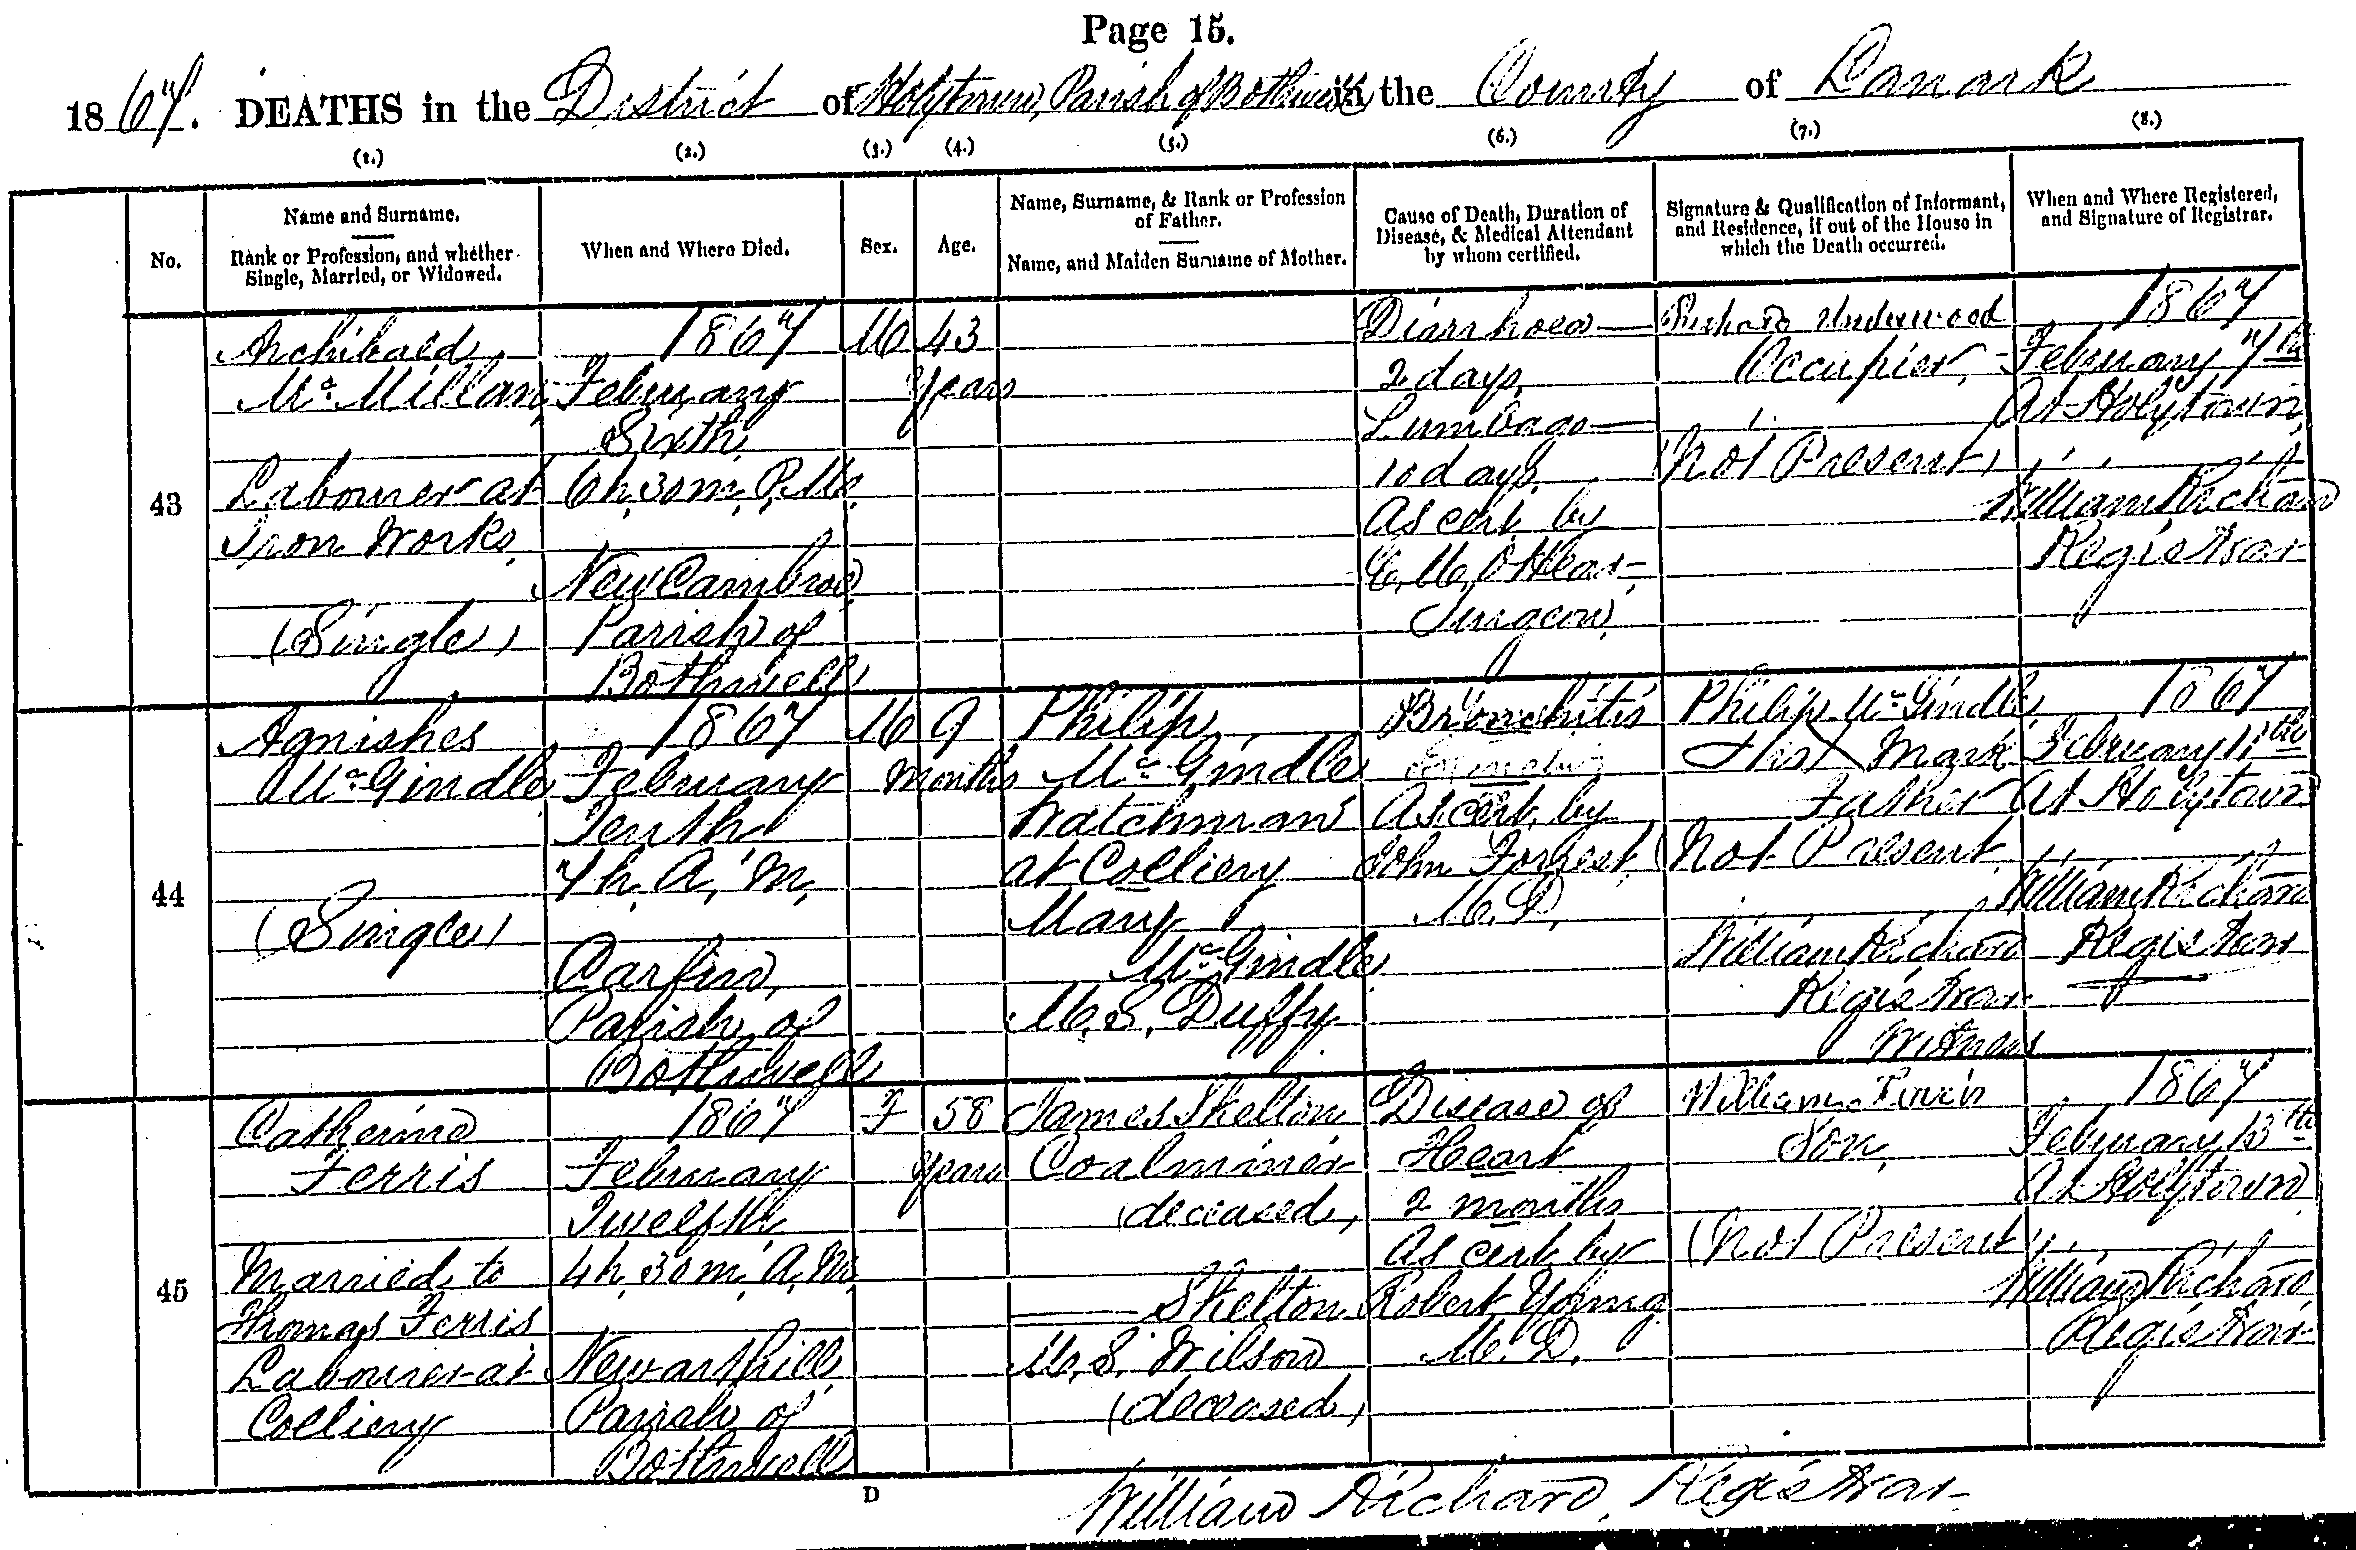 Page 15.
1867. DEATHS in the District of Holytown, Parish of Bothwell in the County of Lanark
(1.) (2.) (3.) (4.) (5.) (6.) (7.) (8.)
No.
Name and Surname.
Rank or Profession, and whether
Single, Married, or Widowed.
When and Where Died.
Sex.
Age.
Name, Surname, & Rank or Profession
of Father.
Name, and Maiden Surname of Mother.
Cause of Death, Duration of
Disease, & Medical Attendant
by whom certified.
Signature & Qualification of Informant,
and Residence, if out of the House in
which the Death occurred.
When and Where Registered,
and Signature of Registrar.
43
Archibald
McMillan
Labourer at
Iron Works.
(Single)
1867
February
Sixth
6h. 30m. P.M.
New Cambroe
Parish of
Bothwell
M
43
years
Diarrhoea
2 days
Lumbago
10 days
As cert. by
Surgeon
Richard Underwood
Occupier,
(Not Present)
1867
February 7th
At Holytown
William Richard
Registrar
44
Agnishes
McGindle
(Single)
1867
February
Tenth
7h. A. M.
Carfin,
Parish of
Bothwell
M
9
months
Philip
McGindle
Watchman
at Colliery
Mary
McGindle
M.S. Duffy
Bronchitis
As cert. by
John Forrest
M.D.
Philip McGindle
His X Mark
Father
(Not Present
William Richard
Registrar
Witness
1867
February 11th
At Holytown
William Richard
Registrar
45
Catherine
Ferris
Married to
Thomas Ferris
Labourer at
Colliery
1867
February
Twelfth
4h. 30m. A.M.
Newarthill
Parish of
Bothwell
F
58
years
James Shelton
Coalminer
(deceased)
Shelton
M.S. Wilson
(deceased)
Disease of
Heart
2 months
As cert. by
Robert Young
M.D.
William
Son,
(Not Present)
1867
February 13th
At Holytown
William Richard
Registrar
D
William Richard, Registrar